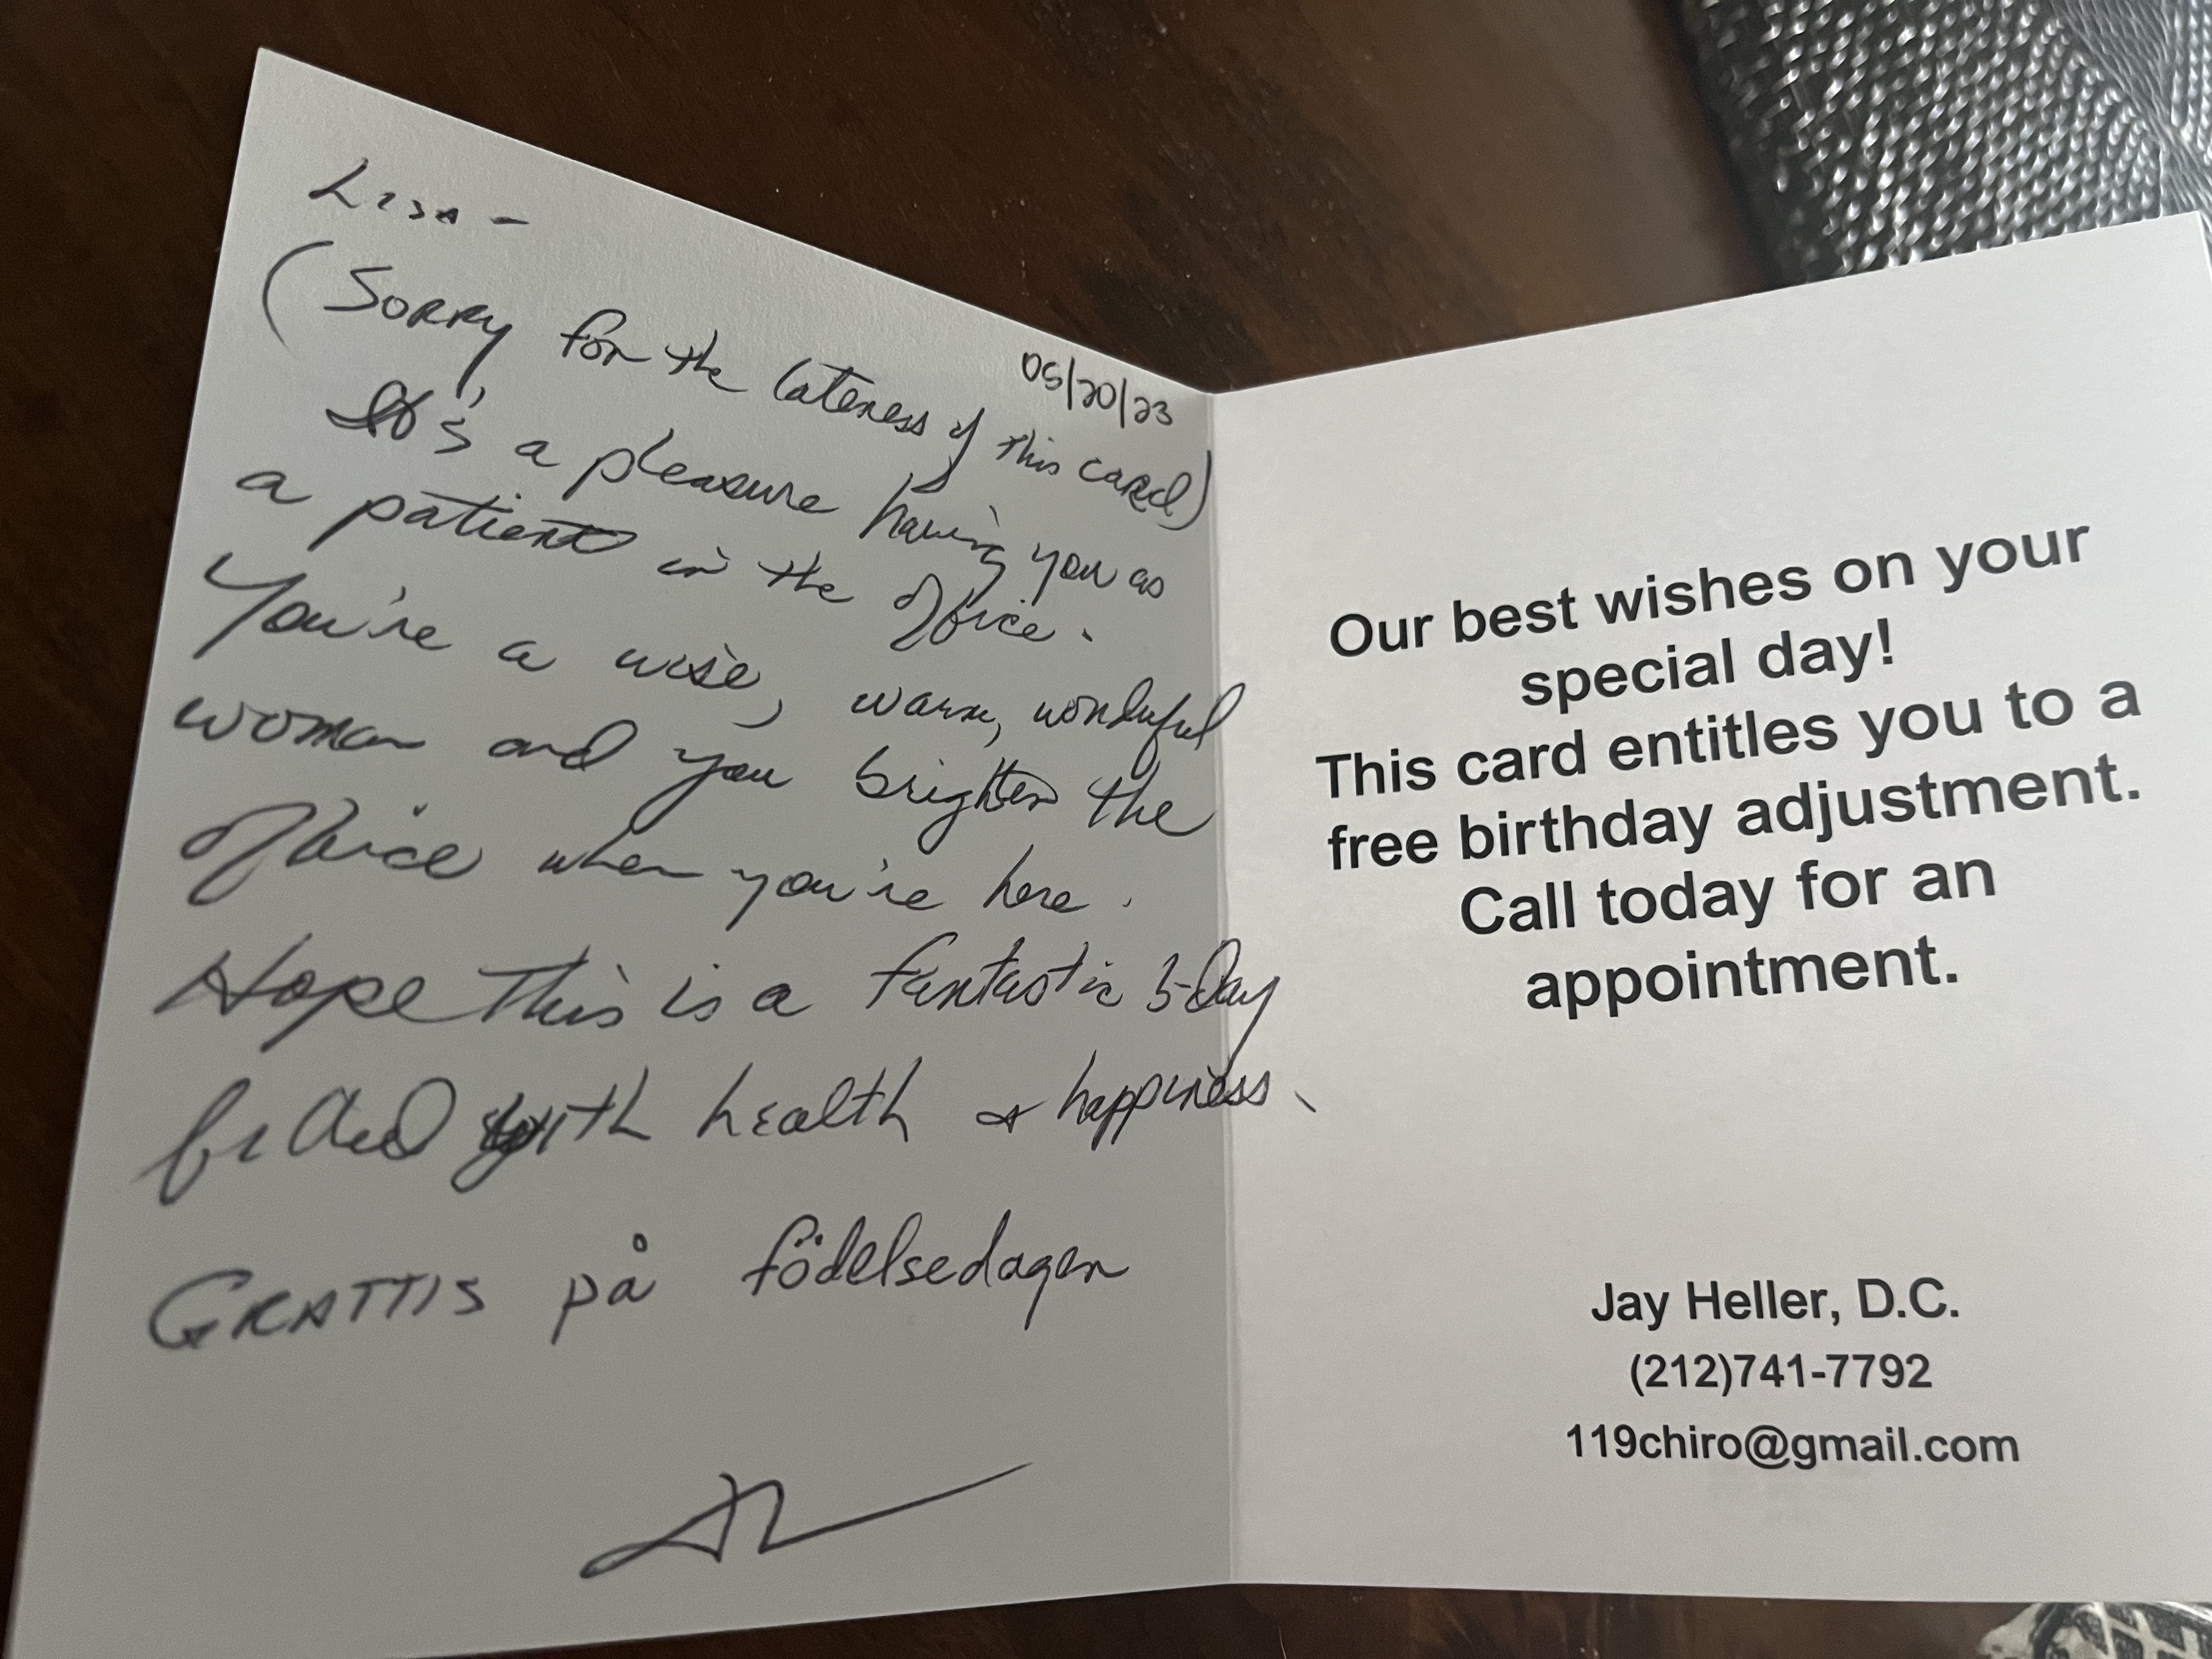 Lisa -
05/20/23
(Sorry for the lateness of this card)
It's a pleasure having you as
a patient in the office.
You're a wise, warm, wonderful
woman and you brighten the
office when you're here.
Hope This is a fantastic B-Day
filled with health & happiness.
GRATTIS på födelsedagen
Our best wishes on your
special day!
This card entitles you to a
free birthday adjustment.
Call today for an
appointment.
Jay Heller, D.C.
(212)741-7792
119chiro@gmail.com